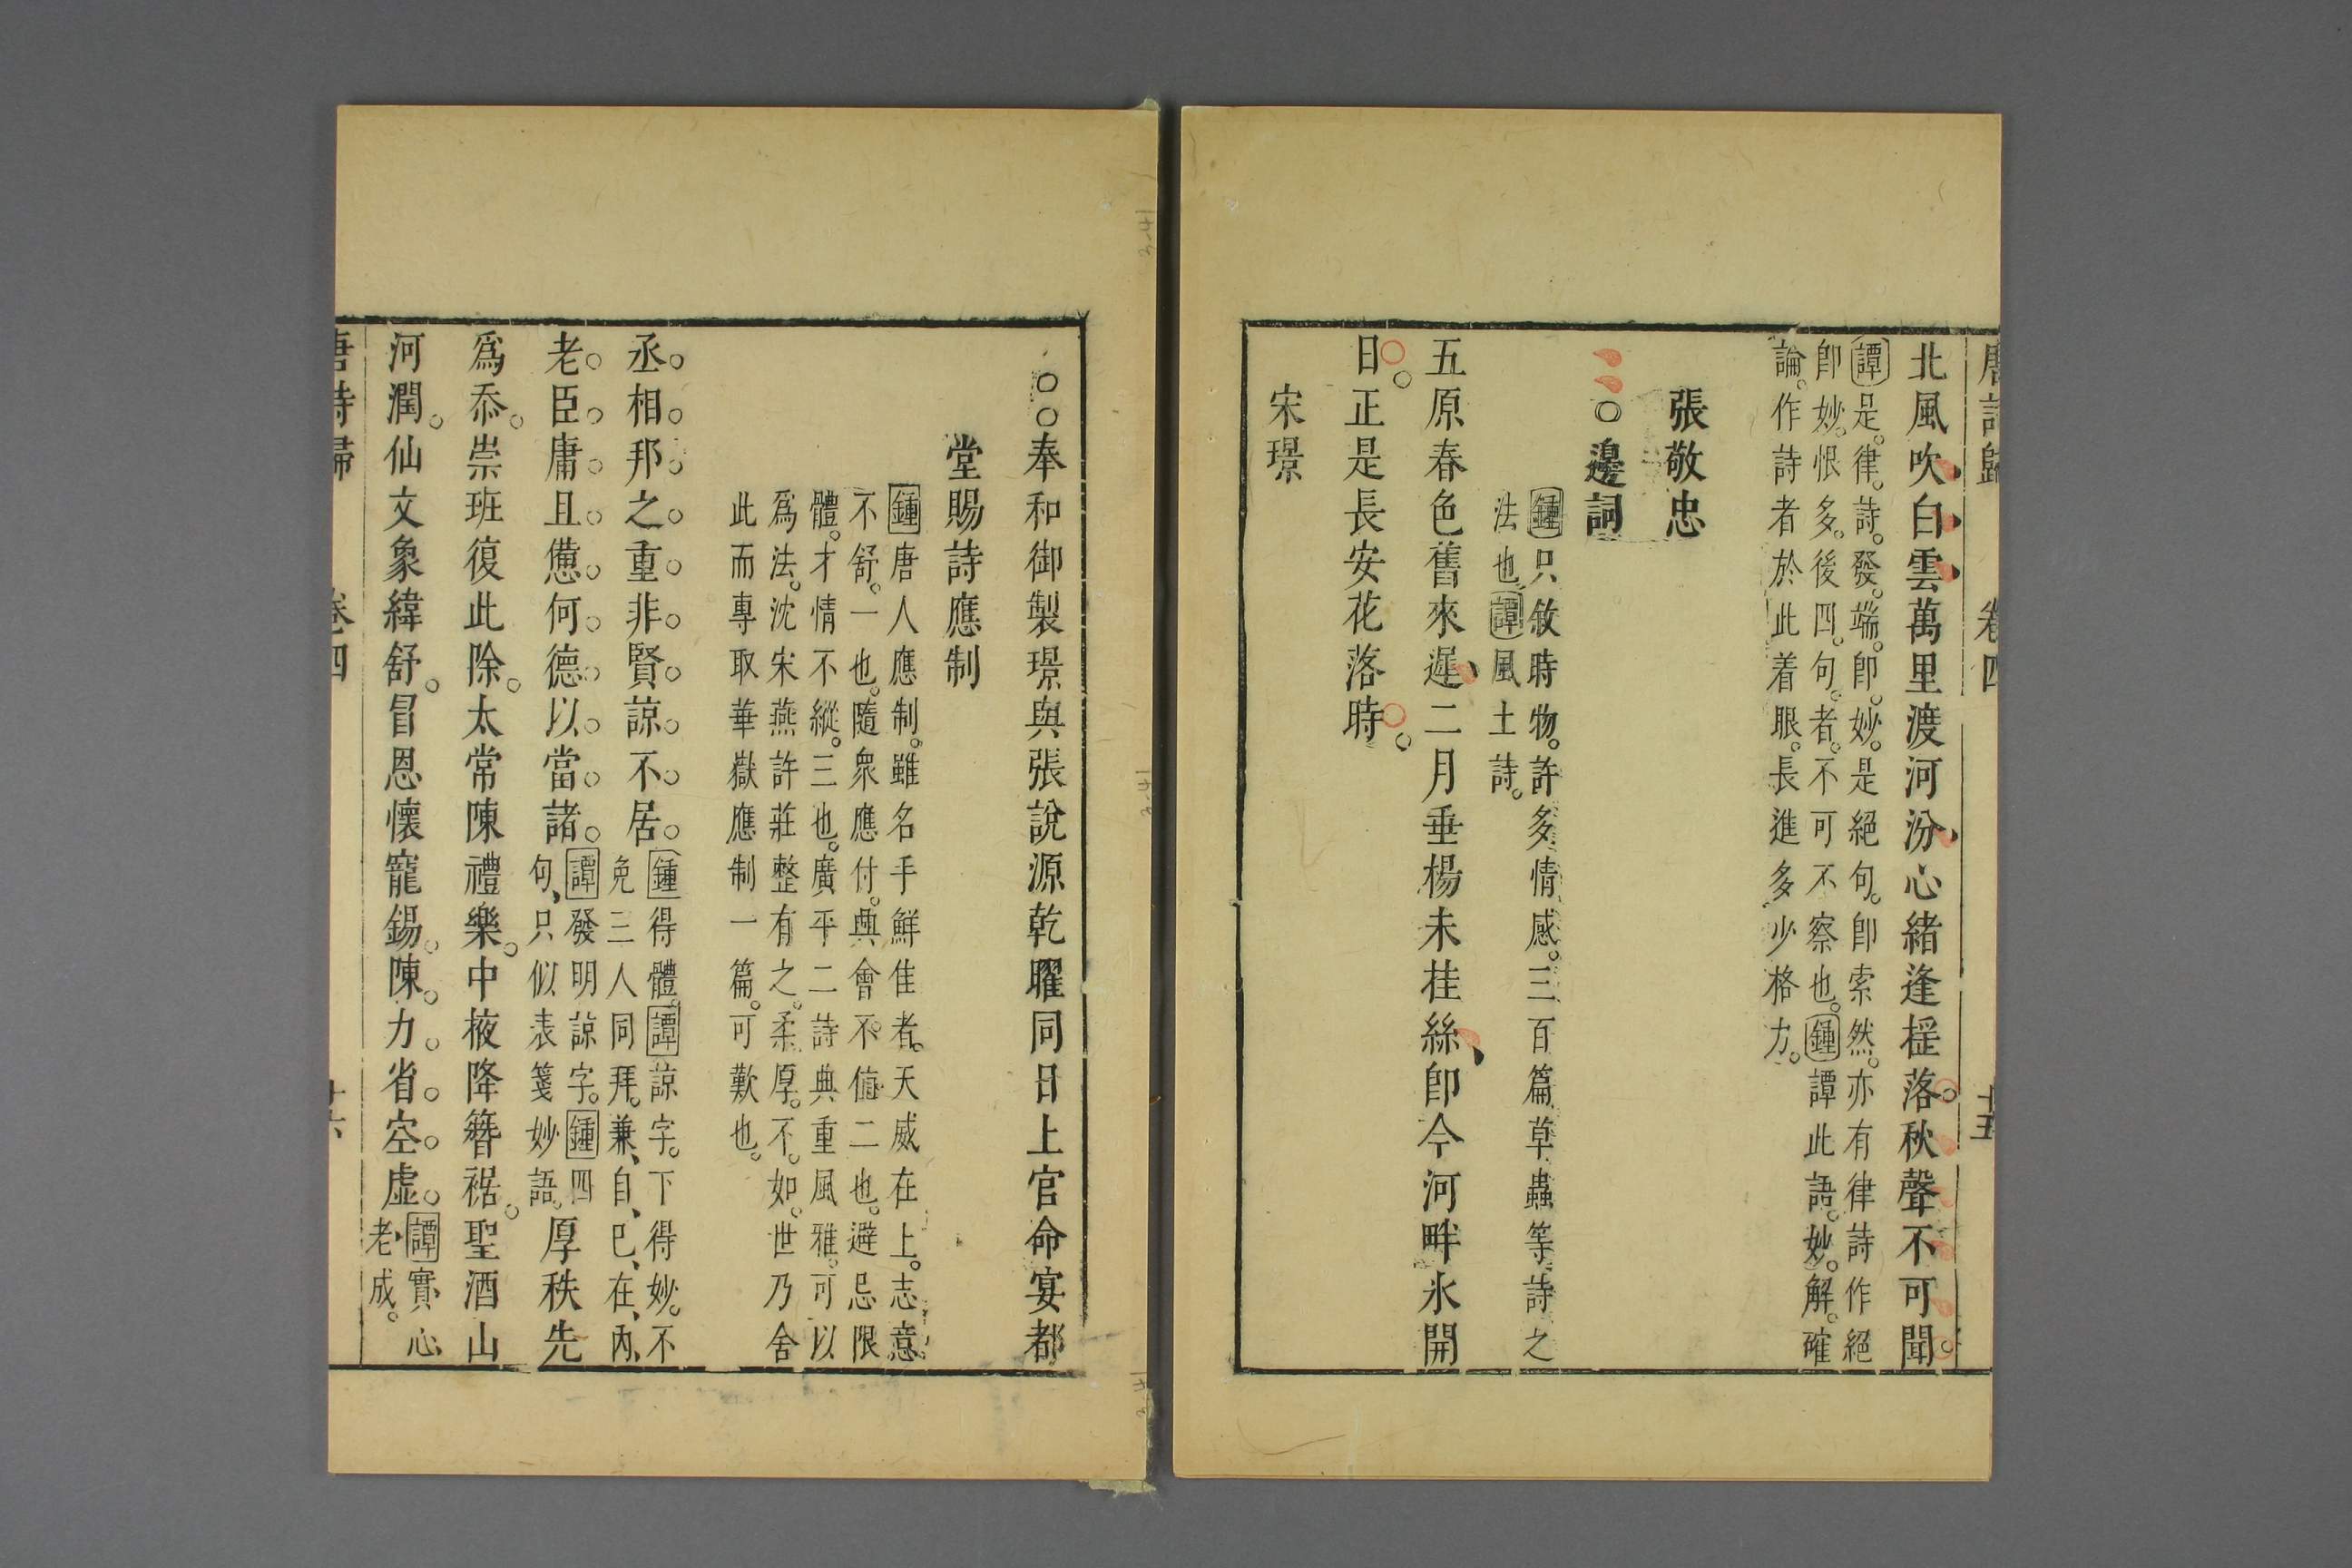 唐詩歸 卷四 十五
北風吹白雲萬里渡河汾心緒逢搖落秋聲不可聞
譚是律詩發端卽妙是絕句卽索然亦有律詩作絕
卽妙恨多後四句者不可不察也鍾譚此語妙解確
論作詩者於此着眼長進多少格力
張敬忠
○邊詞
鍾只敘時物許多情感三百篇草蟲等詩之
法也譚風土詩
五原春色舊來遲二月垂楊未挂絲卽今河畔氷開
日正是長安花落時
宋璟
○○奉和御製璟與張說源乾曜同日上官命宴都
堂賜詩應制
鍾唐人應制雖名手鮮佳者天威在上志意
不舒一也隨衆應付興會不値二也避忌限
體才情不縱三也廣平二詩典重風雅可以
爲法沈宋燕許莊整有之柔厚不如世乃舍
此而專取華嶽應制一篇可歎也
丞相邦之重非賢諒不居鍾得體譚諒字下得妙不
免三人同拜兼自巳在內
老臣庸且憊何德以當諸譚發明諒字鍾四
句只似表箋妙語厚秩先
爲忝崇班復此除太常陳禮樂中掖降簪裾聖酒山
河潤仙文象緯舒冒恩懷寵錫陳力省空虛譚實心
老成
唐詩歸 卷四 十六